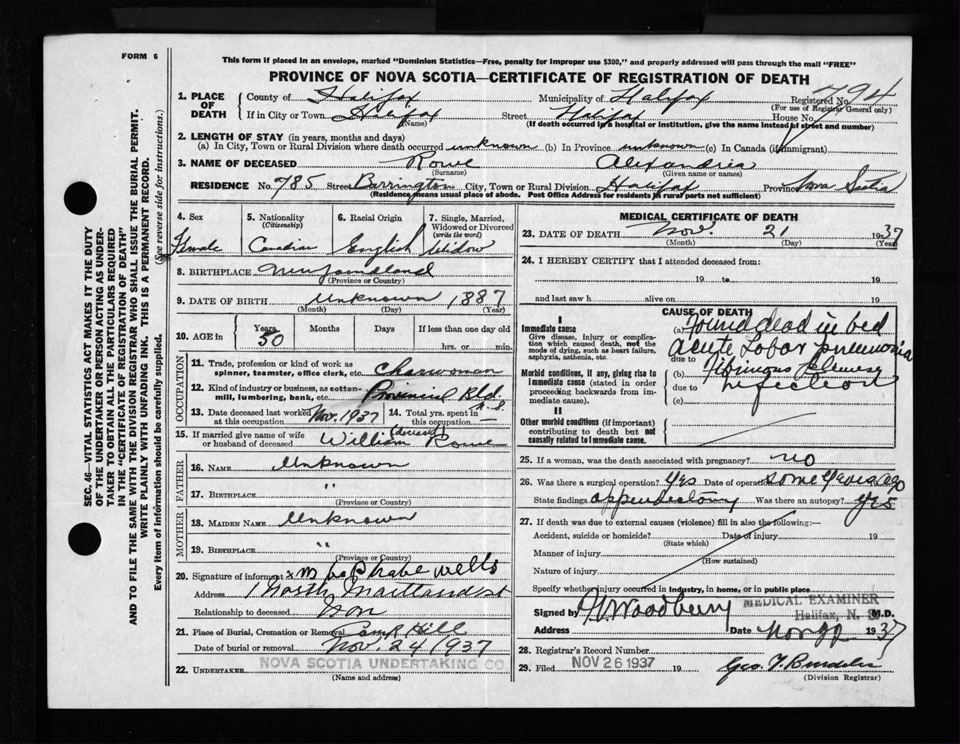 FORM 6
This form if placed in an envelope, marked "Dominion Statistics—Free, penalty for improper use $300," and properly addressed will pass through the mail "FREE"
PROVINCE OF NOVA SCOTIA—CERTIFICATE OF REGISTRATION OF DEATH
SEC. 46—VITAL STATISTICS ACT MAKES IT THE DUTY
OF THE UNDERTAKER OR PERSON ACTING AS UNDER-
TAKER TO OBTAIN ALL THE PARTICULARS REQUIRED
IN THE "CERTIFICATE OF REGISTRATION OF DEATH"
AND TO FILE THE SAME WITH THE DIVISION REGISTRAR WHO SHALL ISSUE THE BURIAL PERMIT.
WRITE PLAINLY WITH UNFADING INK. THIS IS A PERMANENT RECORD.
Every item of information should be carefully supplied. (See reverse side for instructions.)
1. PLACE OF DEATH
County of Halifax Municipality of Halifax Registered No. 794
(For use of Registrar General only)
If in City or Town Halifax Street Halifax House No.
(Name) (If death occurred in a hospital or institution, give the name instead of street and number)
2. LENGTH OF STAY (in years, months and days)
(a) In City, Town or Rural Division where death occurred unknown (b) In Province unknown (c) In Canada (if immigrant)
3. NAME OF DECEASED Rowe Alexandria
(Surname) (Given name or names)
RESIDENCE No. 785 Street Barrington City, Town or Rural Division Halifax Province Nova Scotia
(Residence means usual place of abode. Post Office Address for residents in rural parts not sufficient)
4. Sex
Female
5. Nationality
(Citizenship)
Canadian
6. Racial Origin
English
7. Single, Married,
Widowed or Divorced
(write the word)
Widow
8. BIRTHPLACE Newfoundland
(Province or Country)
9. DATE OF BIRTH Unknown 1887
(Month) (Day) (Year)
10. AGE IN
Years Months Days If less than one day old
50 hrs. or min.
OCCUPATION
11. Trade, profession or kind of work as
spinner, teamster, office clerk, etc. charwoman
12. Kind of industry or business, as cotton-
mill, lumbering, bank, etc. Provincial Bld. N.S.
13. Date deceased last worked
at this occupation Nov. 1937
14. Total yrs. spent in
this occupation
15. If married give name of wife
or husband of deceased William (deceased) Rowe
FATHER
16. NAME Unknown
17. BIRTHPLACE "
(Province or Country)
MOTHER
18. MAIDEN NAME Unknown
19. BIRTHPLACE "
(Province or Country)
20. Signature of informant x Wells
Address 1 North Maitland st
Relationship to deceased Son
21. Place of Burial, Cremation or Removal Camp Hill
Date of burial or removal Nov. 24 1937
22. UNDERTAKER NOVA SCOTIA UNDERTAKING CO.
(Name and address)
MEDICAL CERTIFICATE OF DEATH
23. DATE OF DEATH Nov. 21 1937
(Month) (Day) (Year)
24. I HEREBY CERTIFY that I attended deceased from:
19 to 19
and last saw h alive on 19
CAUSE OF DEATH
I
Immediate cause
Give disease, injury or complica-
tion which caused death, not the
mode of dying, such as heart failure,
asphyxia, asthenia, etc.
(a) Found dead in bed
Acute Lobar pneumonia
due to
Morbid conditions, if any, giving rise to
immediate cause (stated in order
proceeding backwards from im-
mediate cause).
(b) Fibrinous Pleurisy
due to infection
(c)
II
Other morbid conditions (if important)
contributing to death but not
causally related to immediate cause.
25. If a woman, was the death associated with pregnancy? no
26. Was there a surgical operation? yes Date of operation some years ago
State findings appendectomy Was there an autopsy? yes
27. If death was due to external causes (violence) fill in also the following:—
Accident, suicide or homicide? Date of injury 19
(State which)
Manner of injury
(How sustained)
Nature of injury
Specify whether injury occurred in industry, in home, or in public place
Signed by Woodbury MEDICAL EXAMINER M.D.
Halifax, N. S.
Address Date Nov 22 1937
28. Registrar's Record Number
29. Filed NOV 26 1937 19
(Division Registrar)